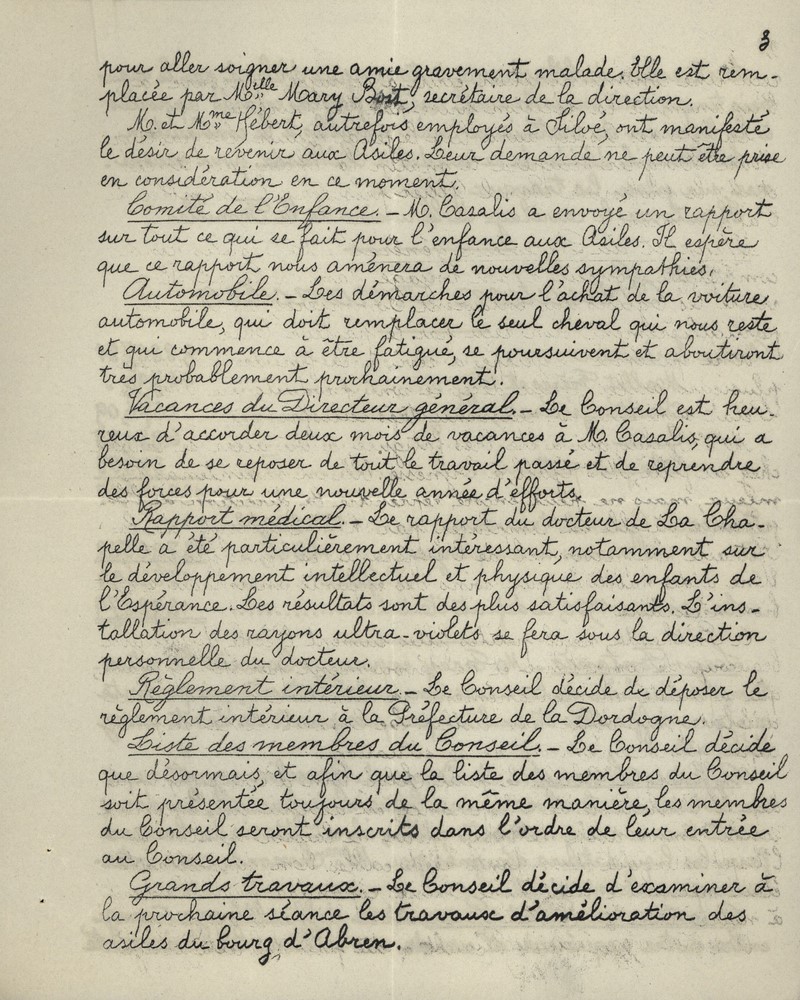 3
pour aller soigner une amie gravement malade. Elle est rem-
placée par Mlle Mary Bost, secrétaire de la direction.
M. et Mme Hébert, autrefois employés à Siloé, ont manifesté
le désir de revenir aux Asiles. Leur demande ne peut être prise
en considération en ce moment.
Comité de l'Enfance. - M. Casalis a envoyé un rapport
sur tout ce qui se fait pour l'enfance aux Asiles. Il espère
que ce rapport nous amènera de nouvelles sympathies.
Automobile. - Les démarches pour l'achat de la voiture
automobile, qui doit remplacer le seul cheval qui nous reste
et qui commence à être fatigué, se poursuivent et aboutiront
très probablement prochainement.
Vacances du Directeur général. - Le Conseil est heu-
reux d'accorder deux mois de vacances à M. Casalis, qui a
besoin de se reposer de tout le travail passé et de reprendre
des forces pour une nouvelle année d'efforts.
Rapport médical. - Le rapport du docteur de La Cha-
pelle a été particulièrement intéressant, notamment sur
le développement intellectuel et physique des enfants de
l'Espérance. Les résultats sont des plus satisfaisants. L'ins-
tallation des rayons ultra-violets se fera sous la direction
personnelle du docteur.
Règlement intérieur. - Le Conseil décide de déposer le
règlement intérieur à la Préfecture de la Dordogne.
Liste des membres du Conseil. - Le Conseil décide
que désormais, et afin que la liste des membres du Conseil
soit présentée toujours de la même manière, les membres
du Conseil seront inscrits dans l'ordre de leur entrée
au Conseil.
Grands travaux. - Le Conseil décide d'examiner à
la prochaine séance les travaux d'amélioration des
asiles du bourg d'Abren.